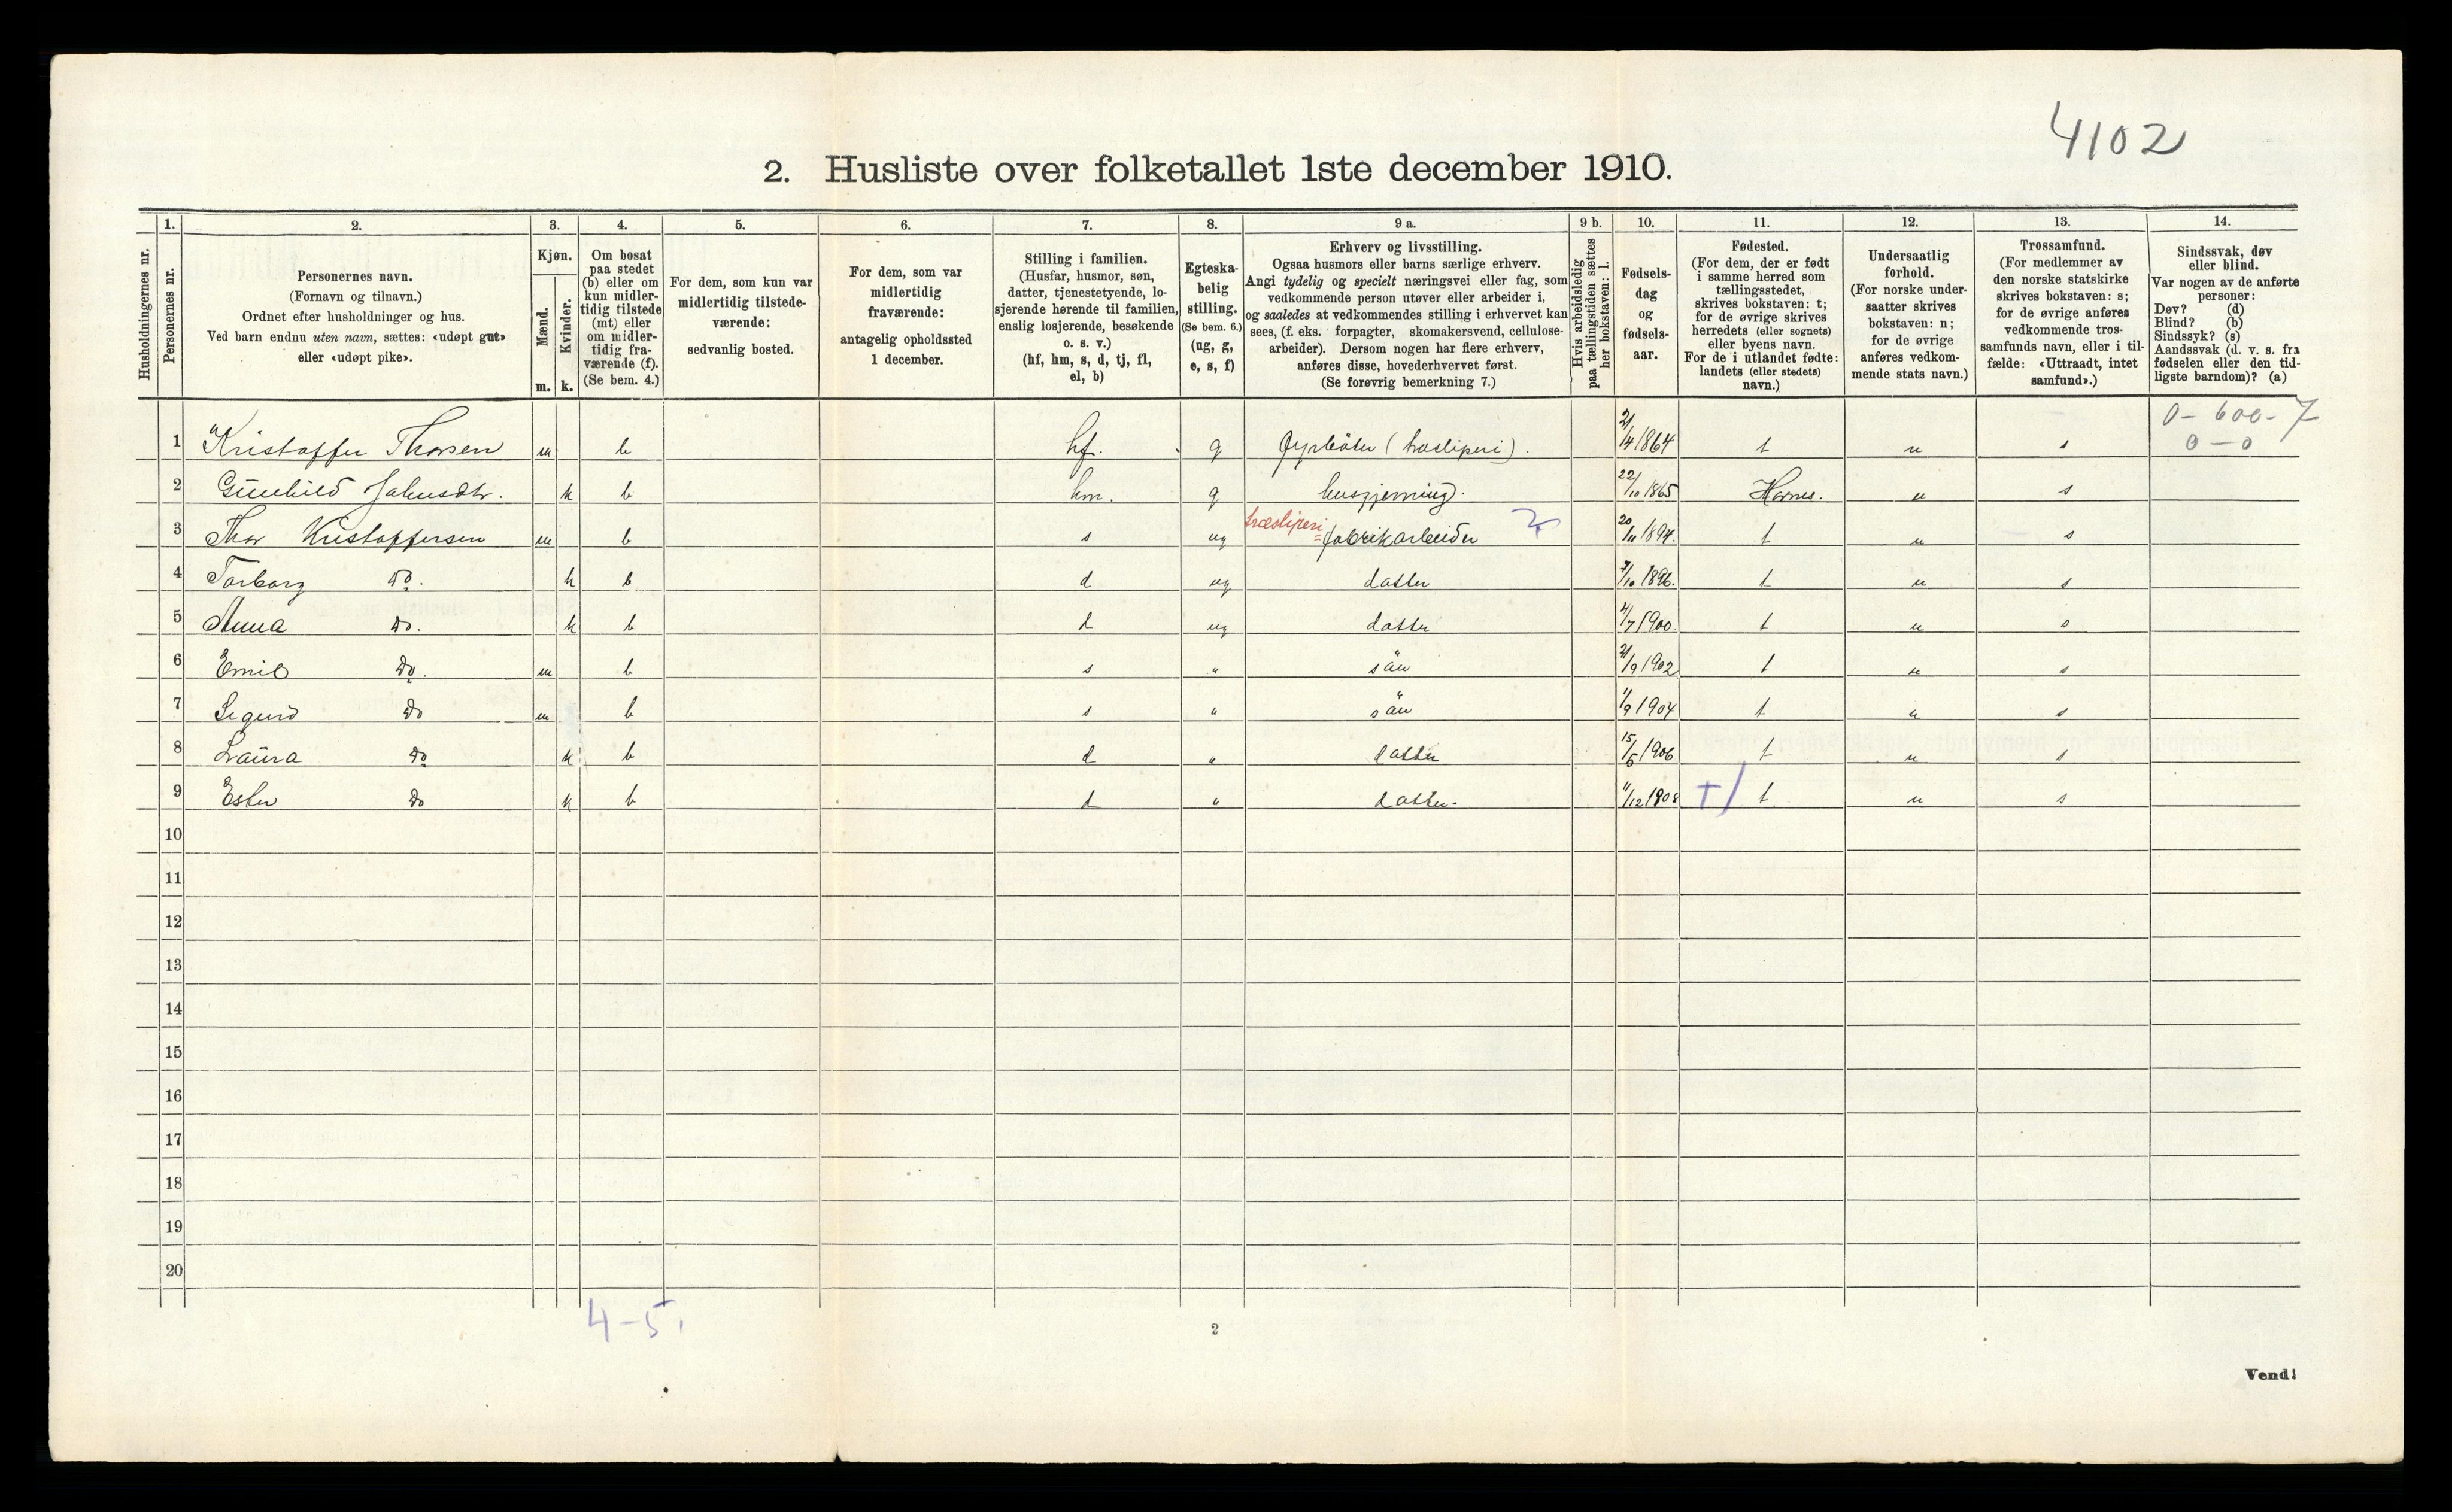 4102
2. Husliste over folketallet 1ste december 1910.
Husholdningernes nr.
1.
Personernes nr.
2.
Personernes navn.
(Fornavn og tilnavn.)
Ordnet efter husholdninger og hus.
Ved barn endnu uten navn, sættes: «udøpt gut»
eller «udøpt pike».
3.
Kjøn.
Mænd.
Kvinder.
m. k.
4.
Om bosat
paa stedet
(b) eller om
kun midler-
tidig tilstede
(mt) eller
om midler-
tidig fra-
værende (f).
(Se bem. 4.)
5.
For dem, som kun var
midlertidig tilstede-
værende:
sedvanlig bosted.
6.
For dem, som var
midlertidig
fraværende:
antagelig opholdssted
1 december.
7.
Stilling i familien.
(Husfar, husmor, søn,
datter, tjenestetyende, lo-
sjerende hørende til familien,
enslig losjerende, besøkende
o. s. v.)
(hf, hm, s, d, tj, fl,
el, b)
8.
Egteska-
belig
stilling.
(Se bem. 6.)
(ug, g,
e, s, f)
9 a.
Erhverv og livsstilling.
Ogsaa husmors eller barns særlige erhverv.
Angi tydelig og specielt næringsvei eller fag, som
vedkommende person utøver eller arbeider i,
og saaledes at vedkommendes stilling i erhvervet kan
sees, (f. eks. forpagter, skomakersvend, cellulose-
arbeider). Dersom nogen har flere erhverv,
anføres disse, hovederhvervet først.
(Se forøvrig bemerkning 7.)
9 b.
Hvis arbeidsledig
paa tællingstiden sættes
her bokstaven: l.
10.
Fødsels-
dag
og
fødsels-
aar.
11.
Fødested.
(For dem, der er født
i samme herred som
tællingsstedet,
skrives bokstaven: t;
for de øvrige skrives
herredets (eller sognets)
eller byens navn.
For de i utlandet fødte:
landets (eller stedets)
navn.)
12.
Undersaatlig
forhold.
(For norske under-
saatter skrives
bokstaven: n;
for de øvrige
anføres vedkom-
mende stats navn.)
13.
Trossamfund.
(For medlemmer av
den norske statskirke
skrives bokstaven: s;
for de øvrige anføres
vedkommende tros-
samfunds navn, eller i til-
fælde: «Uttraadt, intet
samfund».)
14.
Sindssvak, døv
eller blind.
Var nogen av de anførte
personer:
Døv? (d)
Blind? (b)
Sindssyk? (s)
Aandssvak (d. v. s. fra
fødselen eller den tid-
ligste barndom)? (a)
0 - 600 - 7
0 - 0
1 Kristoffer Thorsen m b hf. g fyrböter (træsliperi). 21/4 1864 t n s
2 Gunhild Johnsdtr. k b hm. g husgjerning. 22/10 1865 Hornes. n s
træsliperi
3 Thor Kristoffersen m b s ug = fabrikarbeider 20/11 1894. t n s
4 Torborg Do. k b d ug datter 7/10 1896. t n s
5 Anna Do. k b d ug datter 4/7 1900. t n s
6 Emil Do. m b s " sön 21/9 1902 t n s
7 Sigurd Do m b s " sön 1/9 1904 t n s
8 Laura Do k b d " datter 15/5 1906 t n s
9 Ester Do k b d " datter. 11/12 1908 +/ t n s
10
11
12
13
14
15
16
17
18
19
20
4-5.
2
Vend!